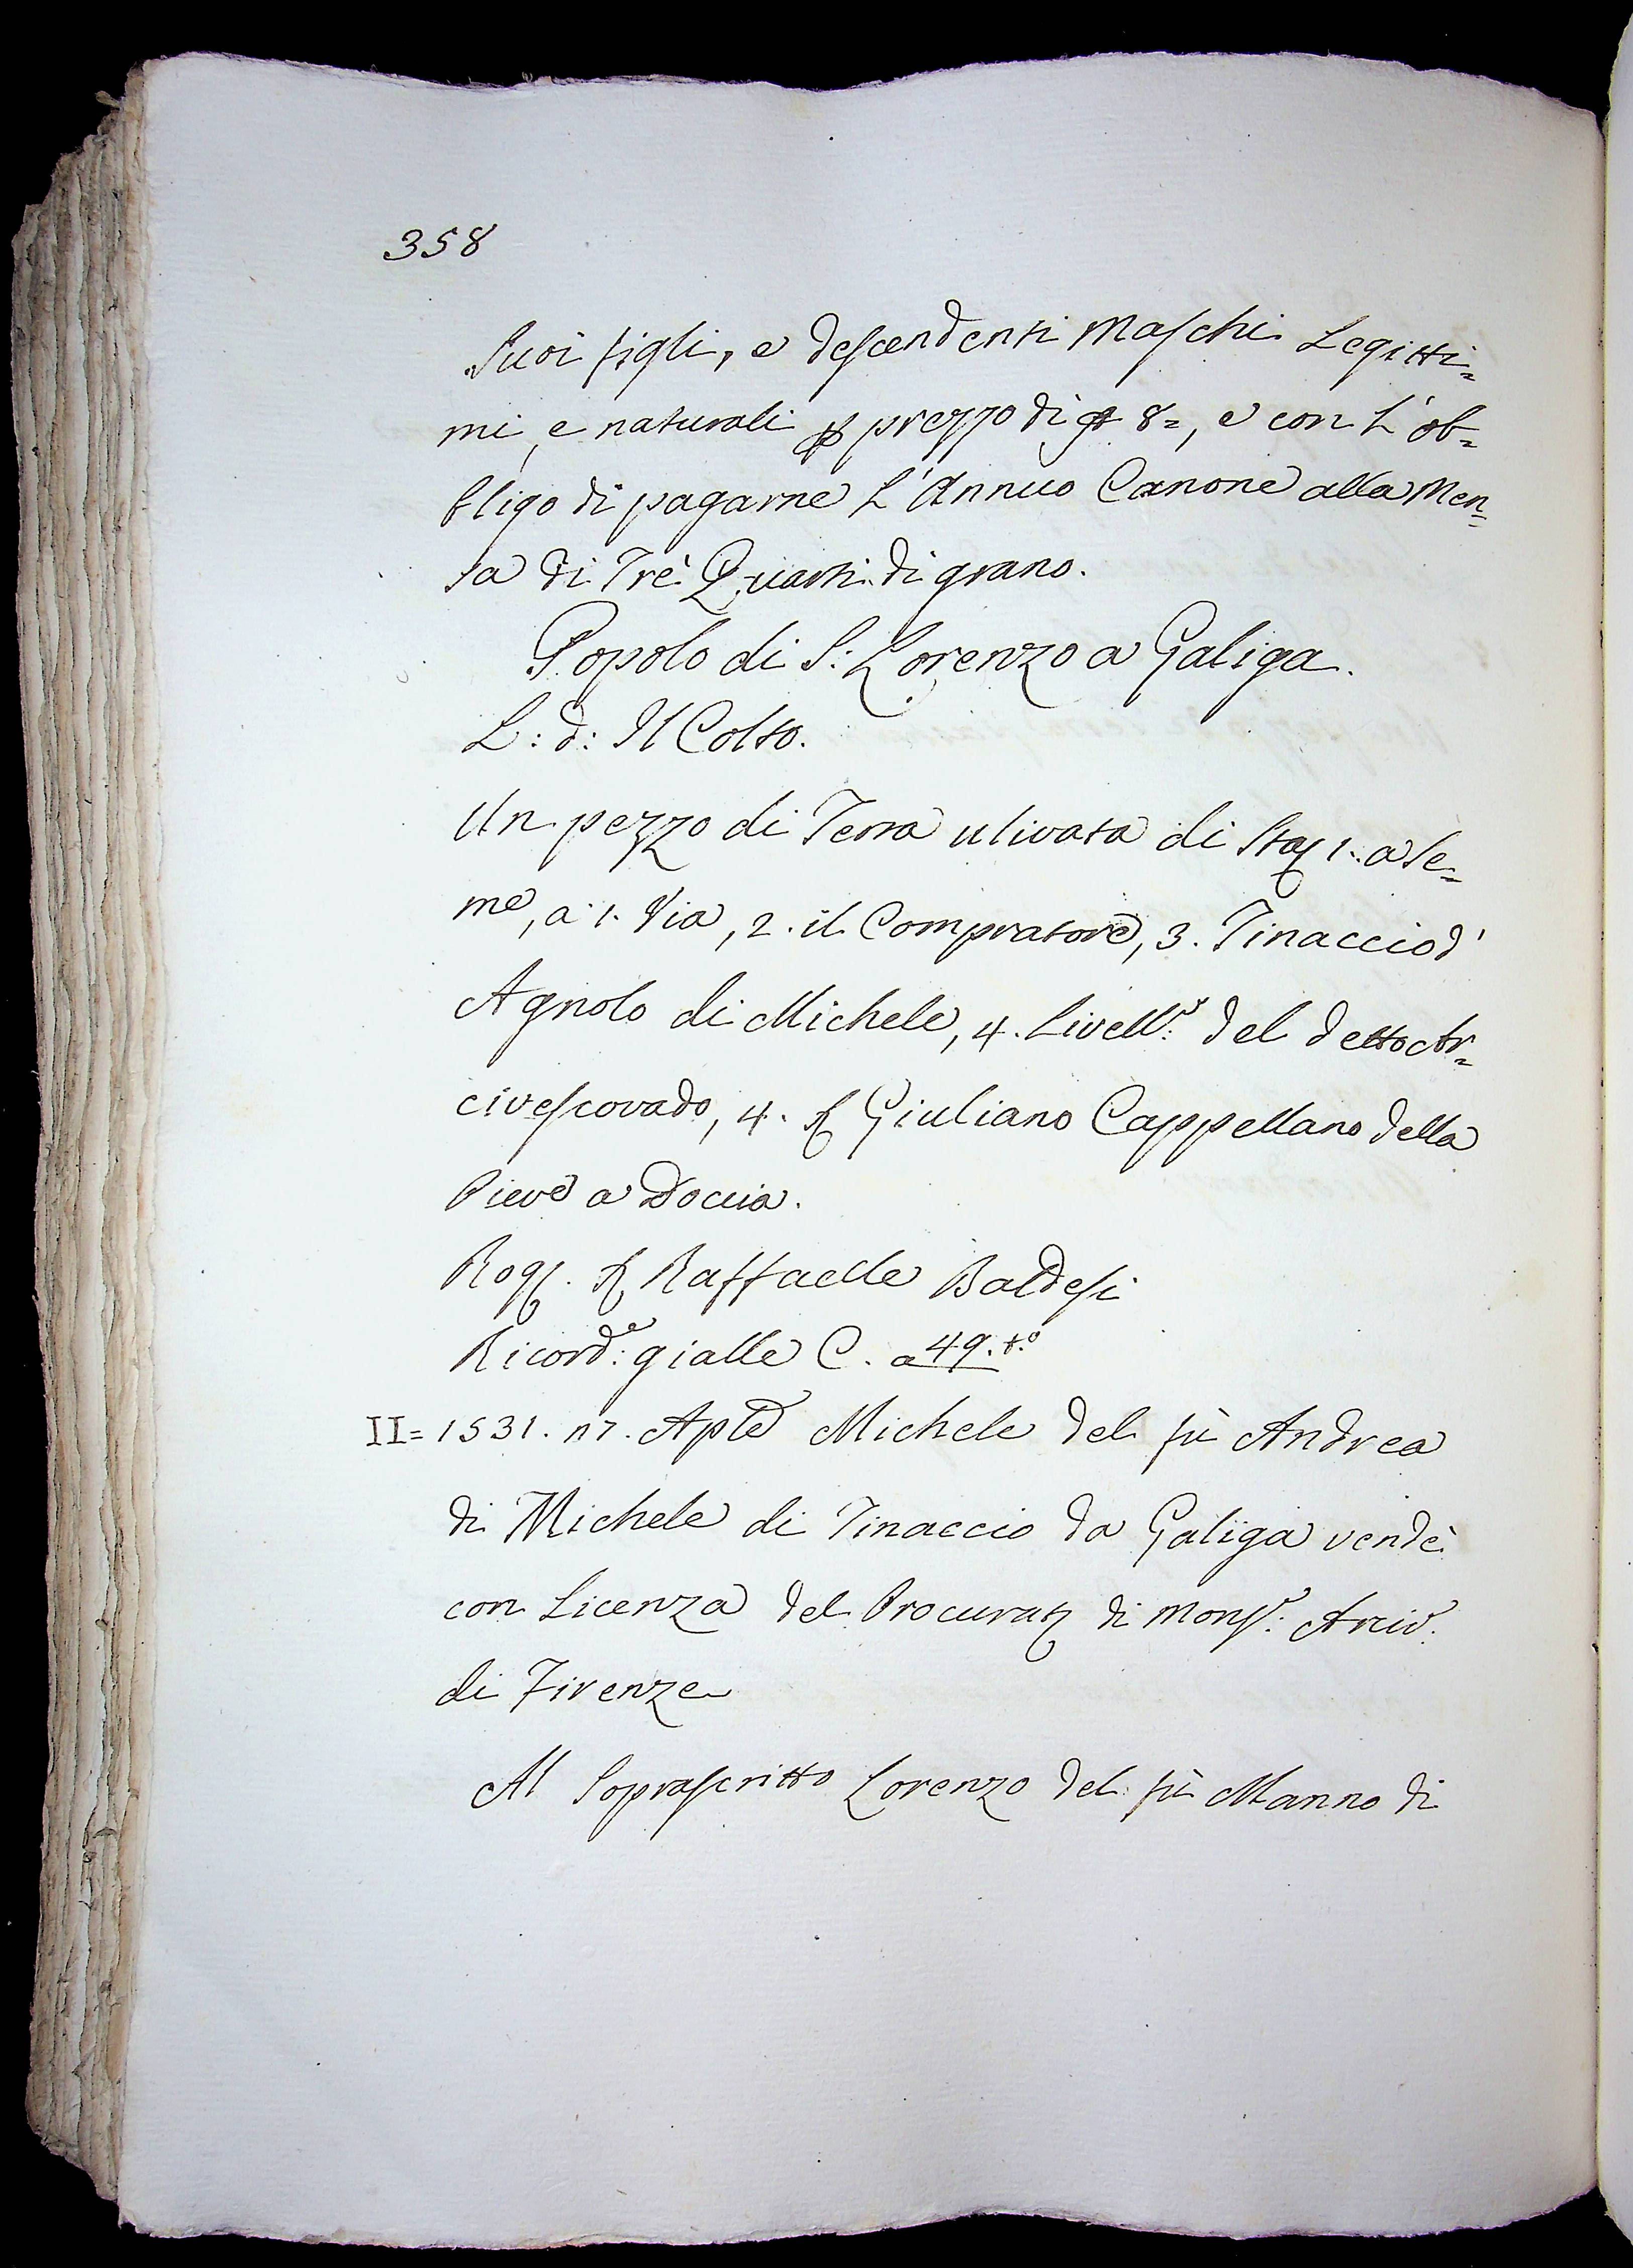 358
Suoi figli, e descendenti Maschi Legitti=
mi, e naturali prezzo di 8=, e con L'ob=
bligo di pagarne L'Annuo Canone alla Men=
sa di Trè Quarti di grano.
Popolo di S: Lorenzo a Galiga.
L: d: Il Colto.
Un pezzo di Terra ulivata di Sta 1. a Se=
me, a 1. Via, 2. il Compratore, 3. Tinaccio d'
Agnolo di Michele, 4. Livell.º del detto Ar=
civescovado, 4. Giuliano Cappellano della
Pieve a Doccia.
Rog. Raffaelle Baldesi
Ricord:e gialle C. a 49. t.º
II= 1531. 17. Aple Michele del fù Andrea
di Michele di Tinaccio da Galiga vendè
con Licenza del Procurat di Mons.r Arciv.
di Firenze
Al Soprascritto Lorenzo del fù Manno di